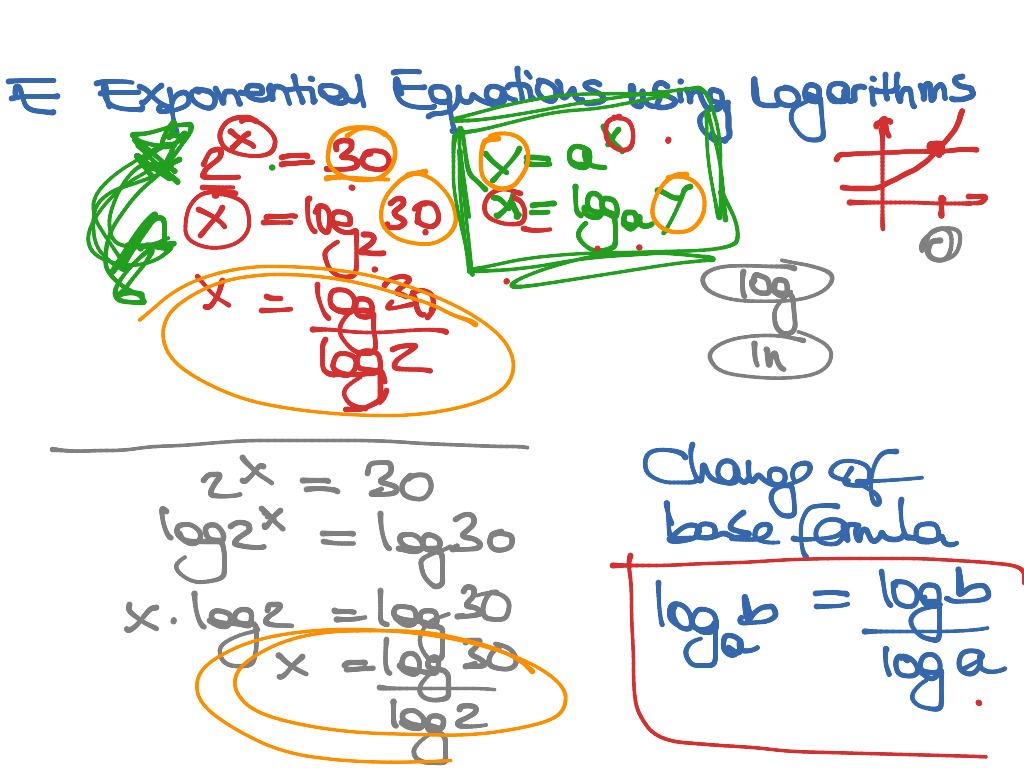 E Exponential Equations using Logarithms
2^x = 30
x = log₂ 30
x = log 30 / log 2
y = a^x
x = logₐ y
log
ln
2^x = 30
log 2^x = log 30
x · log 2 = log 30
x = log 30 / log 2
Change of
base formula
logₐ b = log b / log a